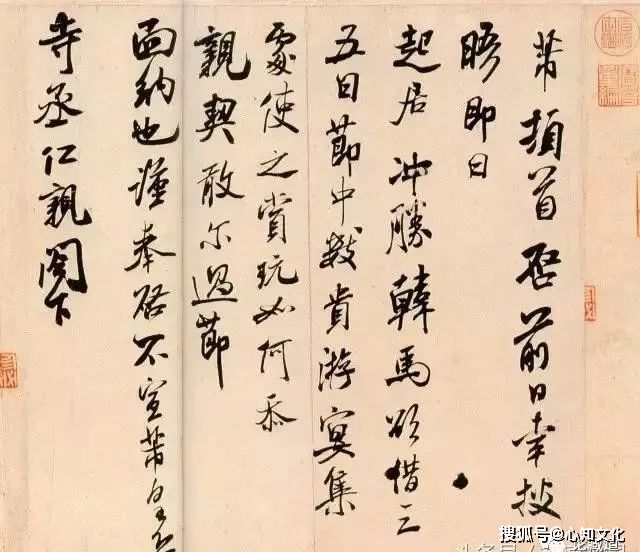 芾頓首啓前日幸披
晤即日
起居冲勝韓馬欲借三
五日節中數貴游宴集
處使之賞玩如何忝
親契敢尔過節
面納也謹奉啓不宣芾皇恐
寺丞仁親閣下
搜狐号@心知文化